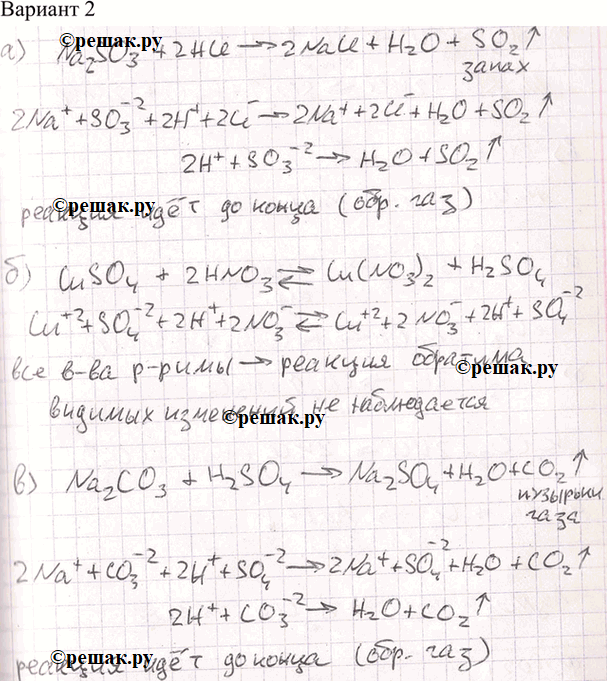 Вариант 2
©решак.ру ©решак.ру
а) Na₂SO₃ + 2HCl → 2NaCl + H₂O + SO₂↑
запах
2Na⁺ + SO₃⁻² + 2H⁺ + 2Cl⁻ → 2Na⁺ + 2Cl⁻ + H₂O + SO₂↑
2H⁺ + SO₃⁻² → H₂O + SO₂↑
©решак.ру
реакция идёт до конца (обр. газ)
б) CuSO₄ + 2HNO₃ ⇄ Cu(NO₃)₂ + H₂SO₄
Cu⁺² + SO₄⁻² + 2H⁺ + 2NO₃⁻ ⇄ Cu⁺² + 2NO₃⁻ + 2H⁺ + SO₄⁻²
все в-ва р-римы → реакция обратима
©решак.ру
видимых изменений не наблюдается
©решак.ру
в) Na₂CO₃ + H₂SO₄ → Na₂SO₄ + H₂O + CO₂↑
пузырьки
газа
2Na⁺ + CO₃⁻² + 2H⁺ + SO₄⁻² → 2Na⁺ + SO₄⁻² + H₂O + CO₂↑
2H⁺ + CO₃⁻² → H₂O + CO₂↑
©решак.ру
реакция идёт до конца (обр. газ)